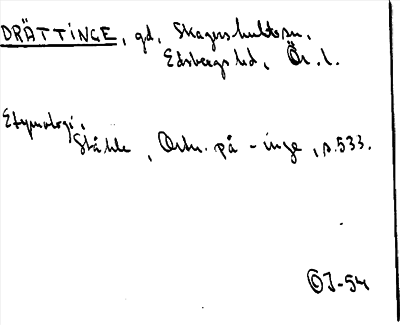 DRÄTTINGE, gd, Skagershultssn,
Edsbergs hd, Ör. l.
Etymologi:
Ståhle, Ortn. på -inge, s. 533.
OJ-54